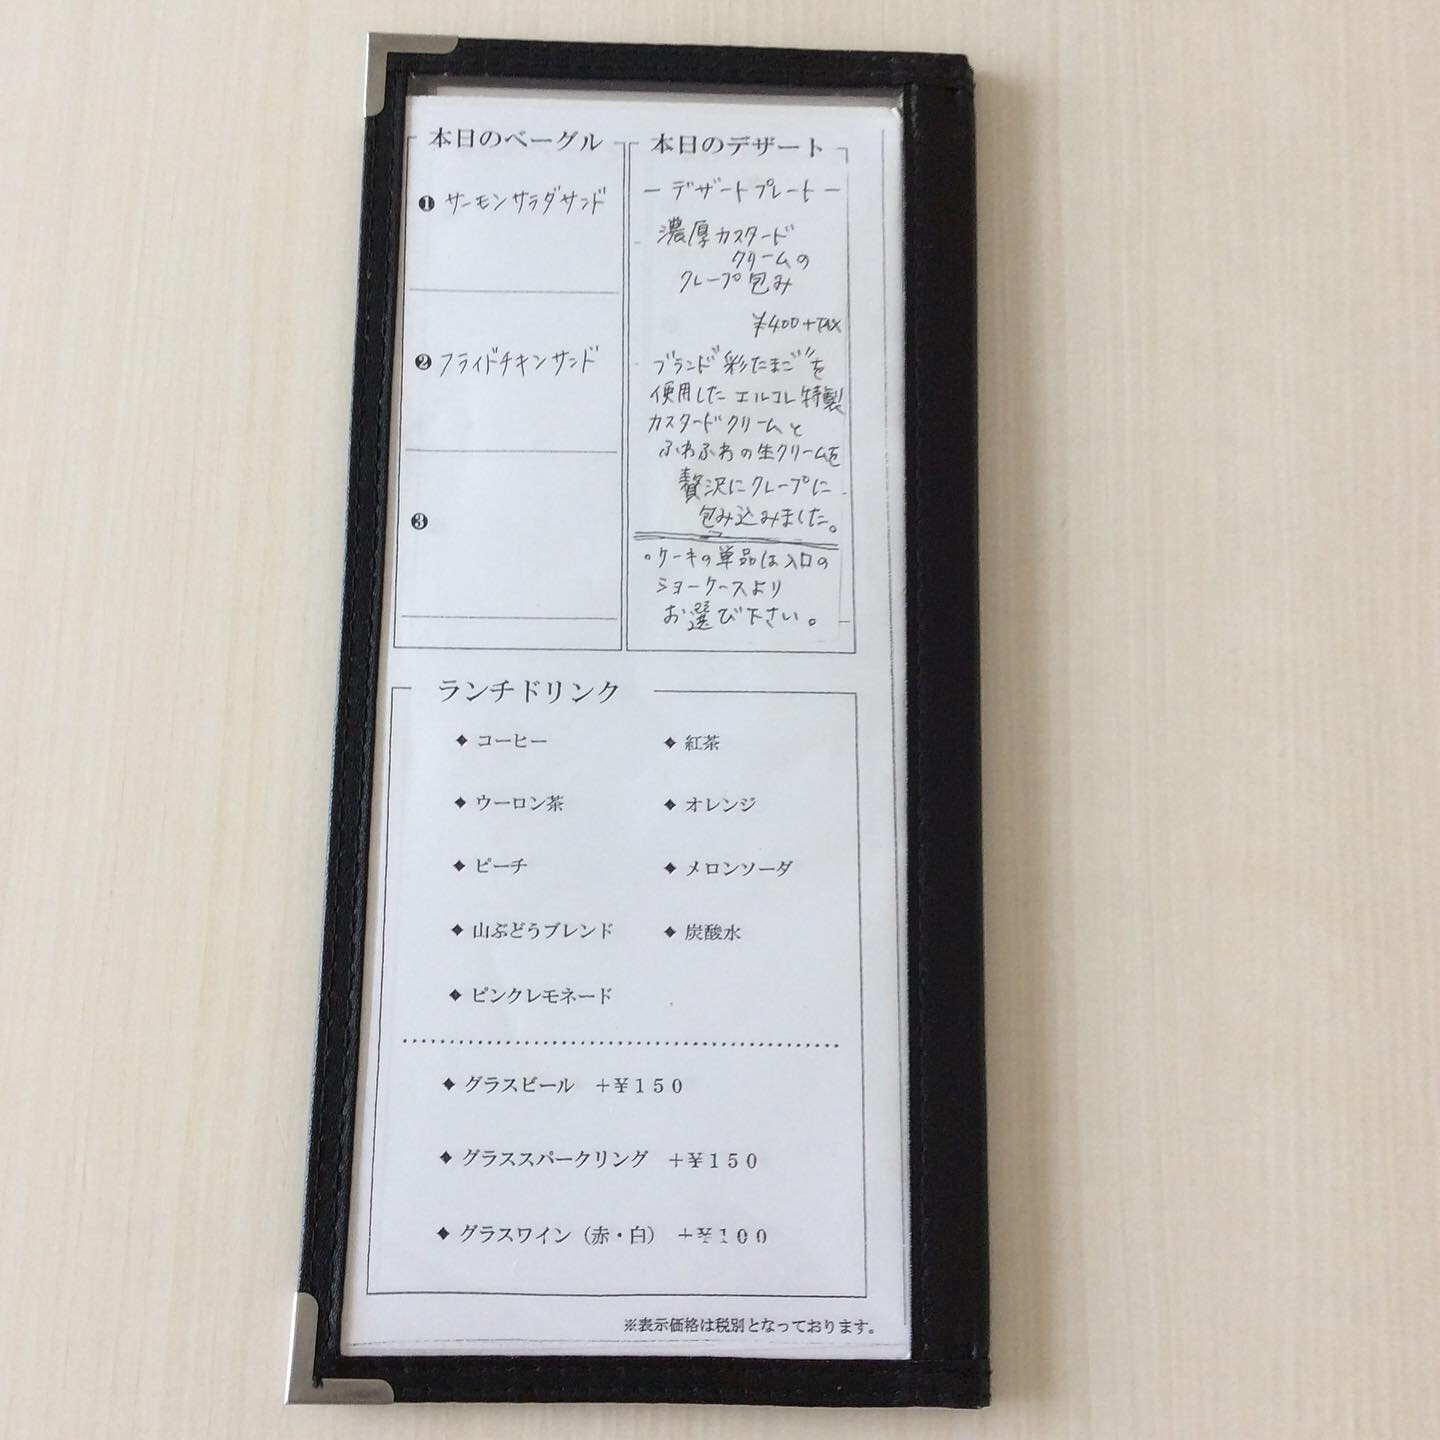 本日のベーグル
❶ サーモンサラダサンド
❷ フライドチキンサンド
❸
本日のデザート
ー デザートプレート ー
濃厚カスタード
クリームの
クレープ包み
¥400+TAX
ブランド"彩たまご"を
使用した エルコレ特製
カスタードクリームと
ふわふわの生クリームを
贅沢にクレープに
包み込みました。
・ケーキの単品は入口の
ショーケースより
お選び下さい。
ランチドリンク
◆ コーヒー
◆ 紅茶
◆ ウーロン茶
◆ オレンジ
◆ ピーチ
◆ メロンソーダ
◆ 山ぶどうブレンド
◆ 炭酸水
◆ ピンクレモネード
◆ グラスビール +¥150
◆ グラススパークリング +¥150
◆ グラスワイン（赤・白） +¥100
※表示価格は税別となっております。